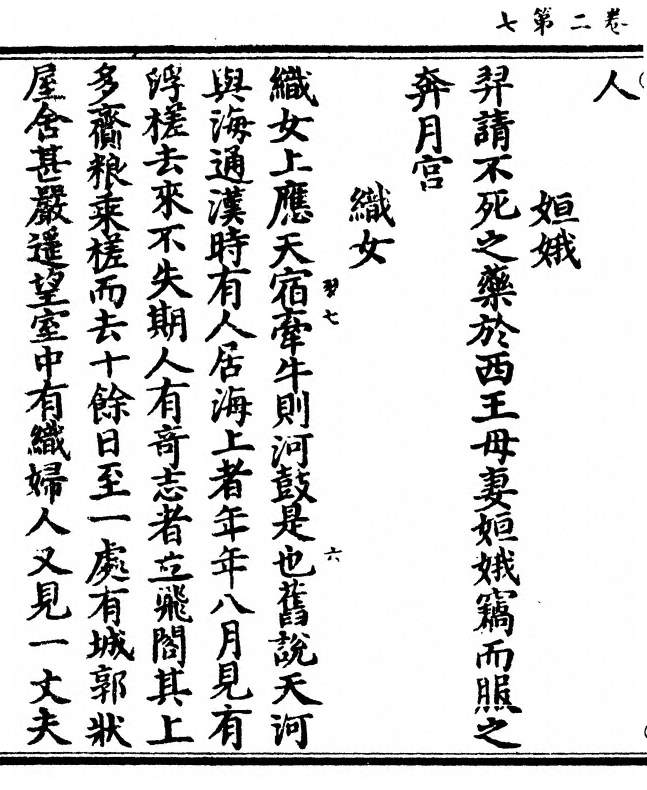 卷二第七
人
姮娥
羿請不死之藥於西王母妻姮娥竊而服之
奔月宫
織女
織女上應天宿牽牛則河鼓是也舊說天河
與海通漢時有人居海上者年年八月見有
浮槎去來不失期人有奇志者立飛閣其上
多齎粮乘槎而去十餘日至一處有城郭狀
屋舍甚嚴遥望室中有織婦人又見一丈夫
七
六